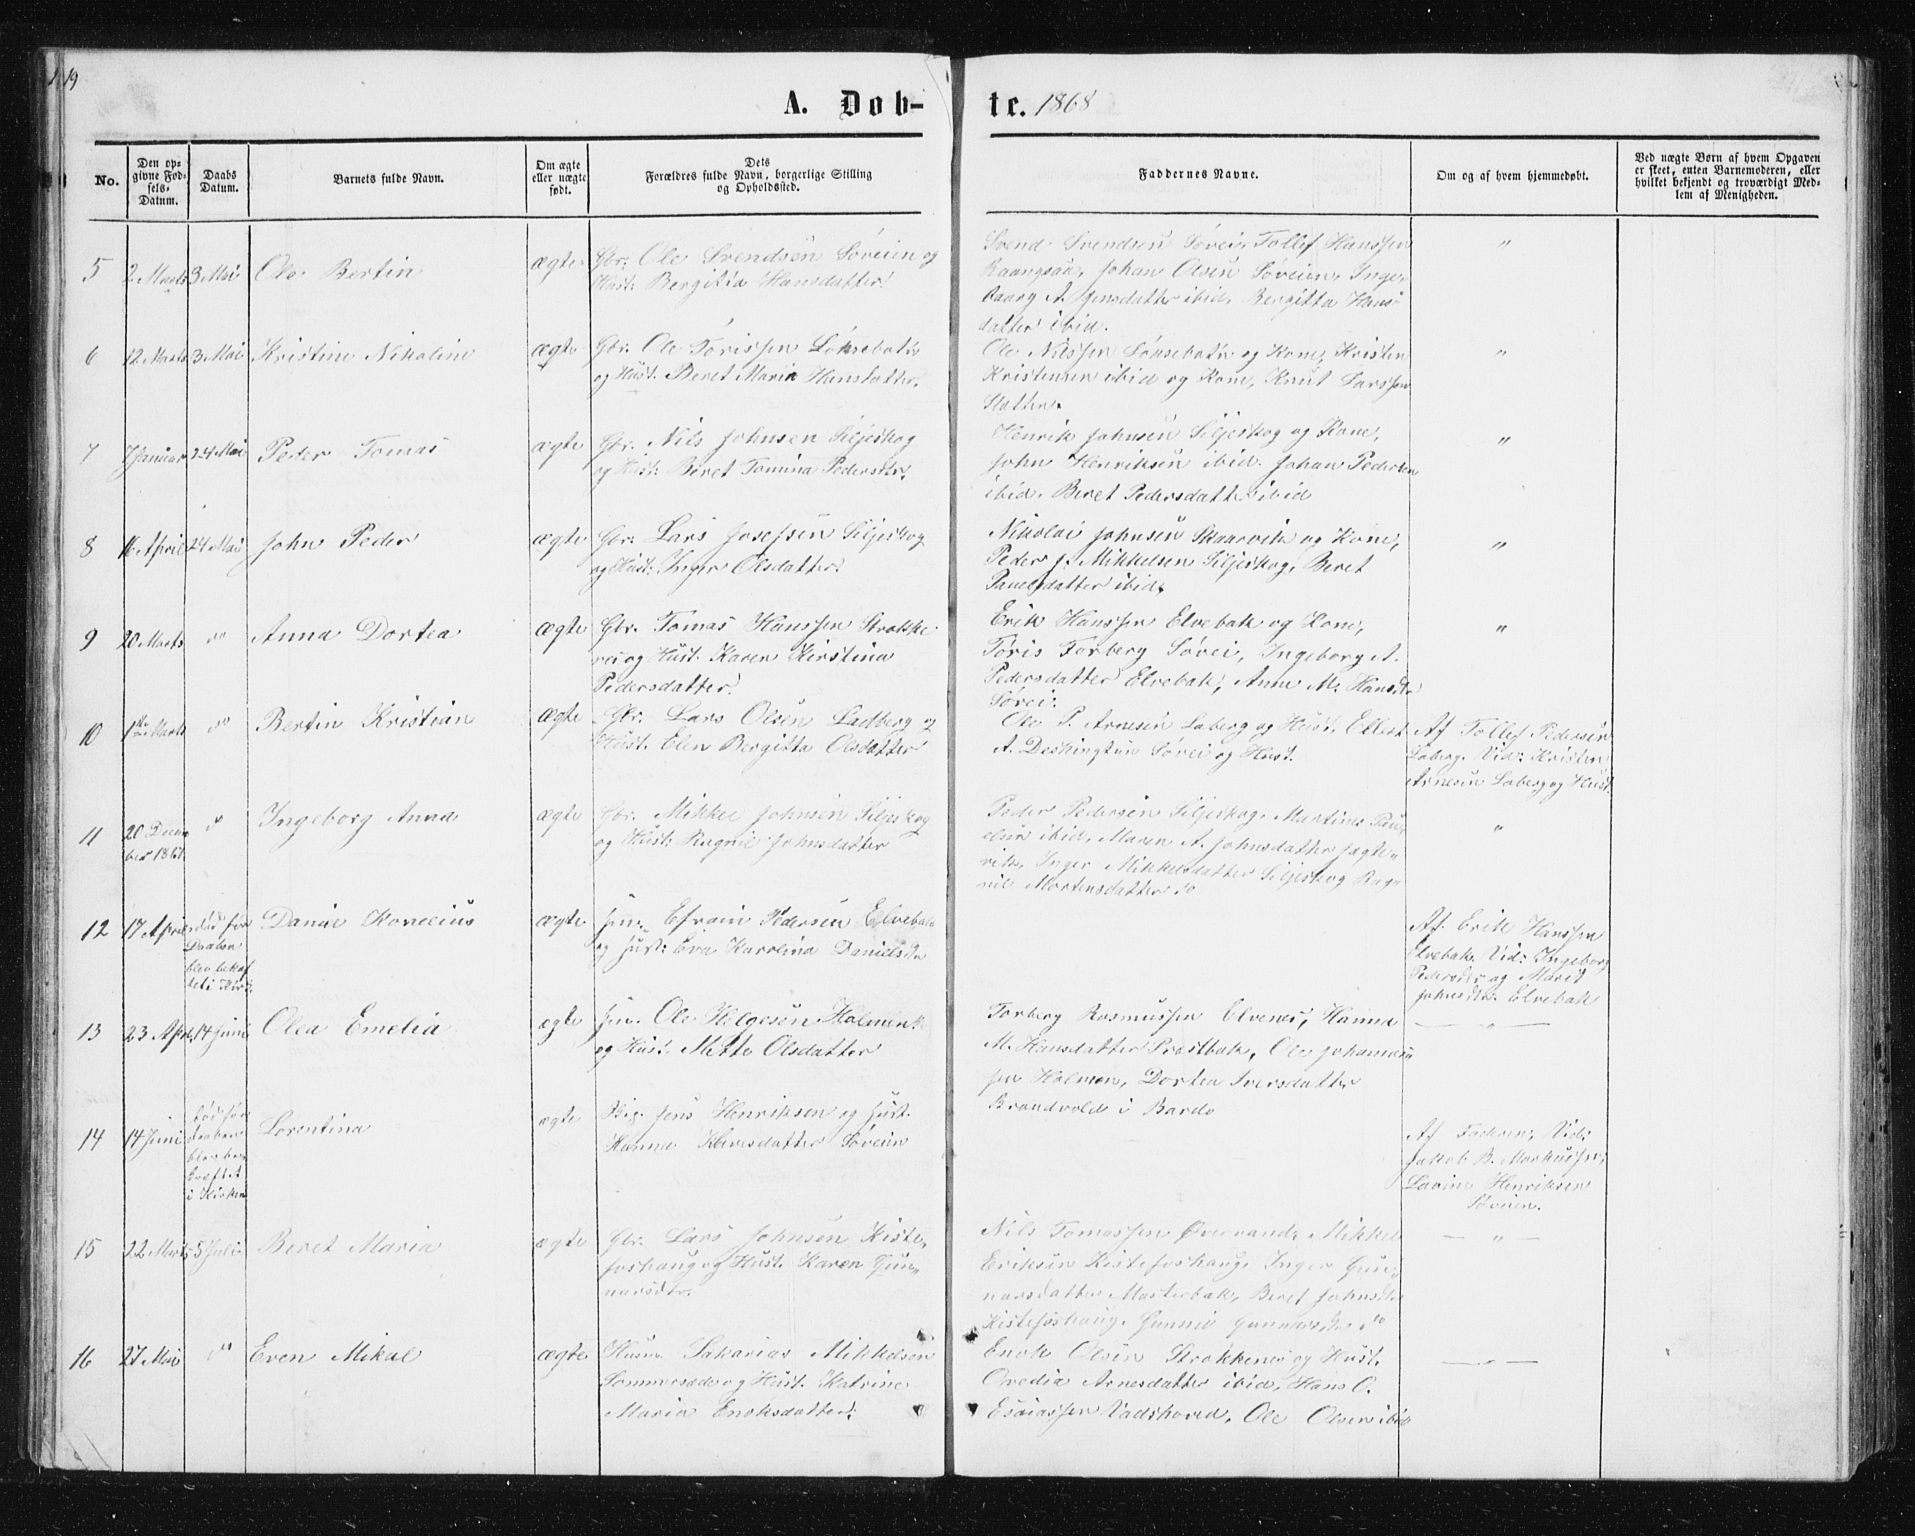 19
A. Døb-
te. 1868
No.
Den op-
givne Fød-
sels-
Datum.
Daabs
Datum.
Barnets fulde Navn.
Om ægte
eller uægte
født.
Dets
Forældres fulde Navn, borgerlige Stilling
og Opholdssted.
Faddernes Navne.
Om og af hvem hjemmedøbt.
Ved uægte Børn af hvem Opgaven
er skeet, enten Barnemoderen, eller
hvilket bekjendt og troværdigt Med-
lem af Menigheden.
5 2 Marts 3 Mai Ole Bertin ægte Gbr. Ole Svendsen Søveien og
Hust. Bergitta Hansdatter.
Svend Svendsen Søvei, Tollef Hanssen
Johan Olsen Søveien, Inge-
baarg A. Jensdatter ibid, Bergitta Hans-
datter ibid.
"
6 12 Marts 3 Mai Kristine Nikoline ægte Gbr. Ole Tørissen Løksebotn
og Hust. Beret Maria Hansdatter.
Ole Nilssen Løksebotn og Kone, Kristen
Kristensen ibid og Kone, Knut Larssen
Slatten.
"
7 7 Januar 24 Mai Peder Tomas ægte Gbr. Nils Johnsen Siljeskog
og Hust. Beret Tomina Pedersdtr.
Henrik Johnsen Siljeskog og Kone,
John Henriksen ibid. Johan Pedersen
ibid. Beret Pedersdatter ibid
"
8 16 April 24 Mai John Peder ægte Gbr. Lars Josefsen Siljeskog
og Hust: Inger Olsdatter.
Nikolai Johnsen Skaarvik og Kone,
Peder J. Mikkelsen Siljeskog, Beret
Paulsdatter ibid.
"
9 20 Marts do Anna Dortea ægte Gbr. Tomas Hanssen Strokke-
nes og Hust. Karen Kirstina
Pedersdatter.
Erik Hanssen Elvebak og Kone,
Tøris Torberg Søvei, Ingeborg A.
Pedersdatter Elvebak, Anne M. Hansdtr
Søvei.
"
10 1ste Marts do Bertin Kristian ægte Gbr. Lars Olsen Ladberg og
Hust. Elen Bergitta Olsdatter
Ole P. Arnesen Laberg og Hust, Ellert
A. Deskington Søvei og Hust.
Af Tollef Pedersen
Laberg. Vid: Kristen
Arnesen Laberg og Hust.
11 20 Decem-
ber 1867 do Ingeborg Anna ægte Gbr. Mikkel Johnsen Siljeskog
og Hust: Ragnil Johnsdatter
Peder Pedersen Siljeskog, Martines Pau-
elsen ibid, Maren A. Johnsdatter Jægter-
vik, Inger Mikkelsdatter Siljeskog Rag-
nil Mortensdatter do
"
12 17 April død før
Daaben
blev bekræf-
tet i Kirk. Daniel Kornelius ægte Inn. Efraim Pedersen Elvebak
og Hust: Eva Karolina Danielsdtr
Af Erik Hanssen
Elvebak. Vid: Ingeborg
Pedersdtr og Marit
Johnsdtr. Elvebak
13 23 April 14 Juni Olea Emelia ægte Inn. Ole Helgesen Holmen
og Hust. Mette Olsdatter
Torberg Rasmussen Elvenes, Hanna
M. Hansdatter Prastbak, Ole Johannes-
sen Holmen, Dortea Iversdatter
Brandvold i Bardo
"
14 14 Juni død før
daaben
blev be-
kræftet
i Kirken Lorentina ægte Jens Henriksen og Hust.
Hanna Søveien
Af Faderen, Vid:
Jakob B. Markussen,
Lavine Henriksen
Søveien.
15 22 Marts 5 Juli Beret Maria ægte Gbr. Lars Johnsen Kiste-
foshaug og Hust. Karen Gun-
narsdtr.
Nils Tomassen Øvervand, Mikkel
Eriksen Kistefoshaug, Inger Gun-
narsdatter Masterbak, Beret Johnsdtr
Kistefoshaug. Gunnil Gunnarsdtr. do
"
16 27 Mai do Even Mikal ægte Husm. Sakarias Mikkelsen
Sommersæde og Hust. Katrine
Maria Enoksdatter.
Enok Olsen Strokkenes og Hust.
Ovedia Arnesdatter ibid, Hans O.
Esaiassen Vadshoved, Ole Olsen ibid
"